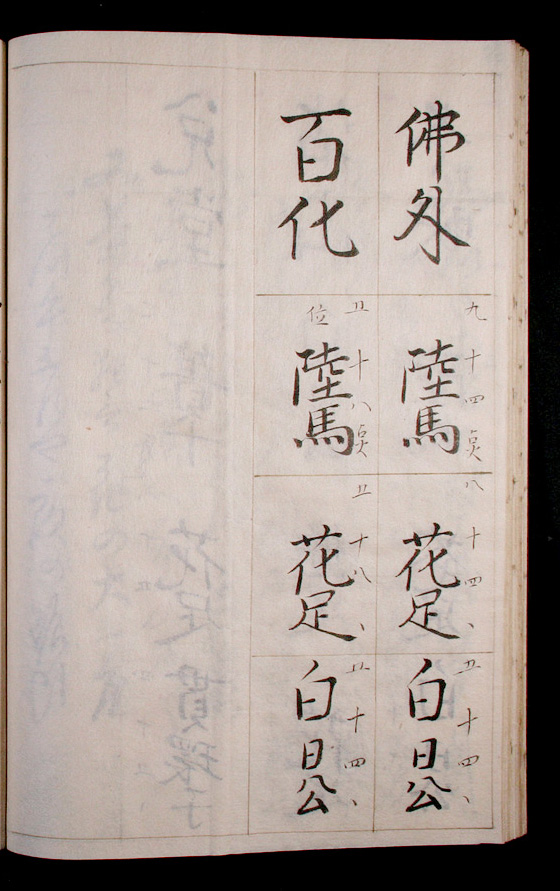 佛外
九 十四点
陸馬
八 十四、
花足
五 十四、
白日公
百化
五 十八点
位
陸馬
五 十八、
花足
五 十四、
白日公